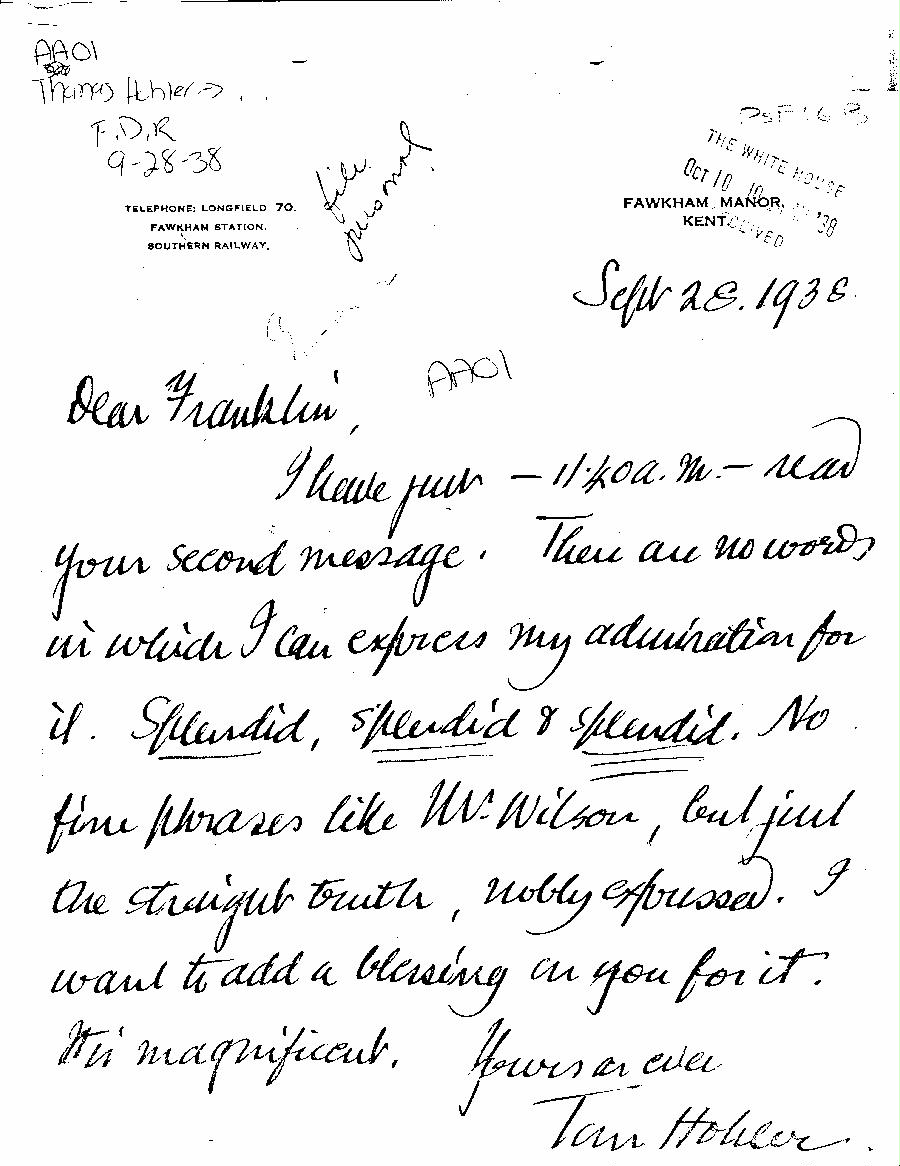 AA01
Thomas Hohler →
F.D.R
9-28-38
file
personal
PSF: G B
THE WHITE HOUSE
OCT 10 '38
RECEIVED
TELEPHONE: LONGFIELD 70.
FAWKHAM STATION.
SOUTHERN RAILWAY.
FAWKHAM MANOR,
KENT.
Sept 28. 1938.
AA01
Dear Franklin,
I have just — 11.40 a.m. — read
your second message. There are no words
in which I can express my admiration for
it. Splendid, splendid & splendid. No
fine phrases like Mr. Wilson, but just
the straight truth, nobly expressed. I
want to add a blessing on you for it.
It is magnificent. Yours as ever
Tom Hohler.